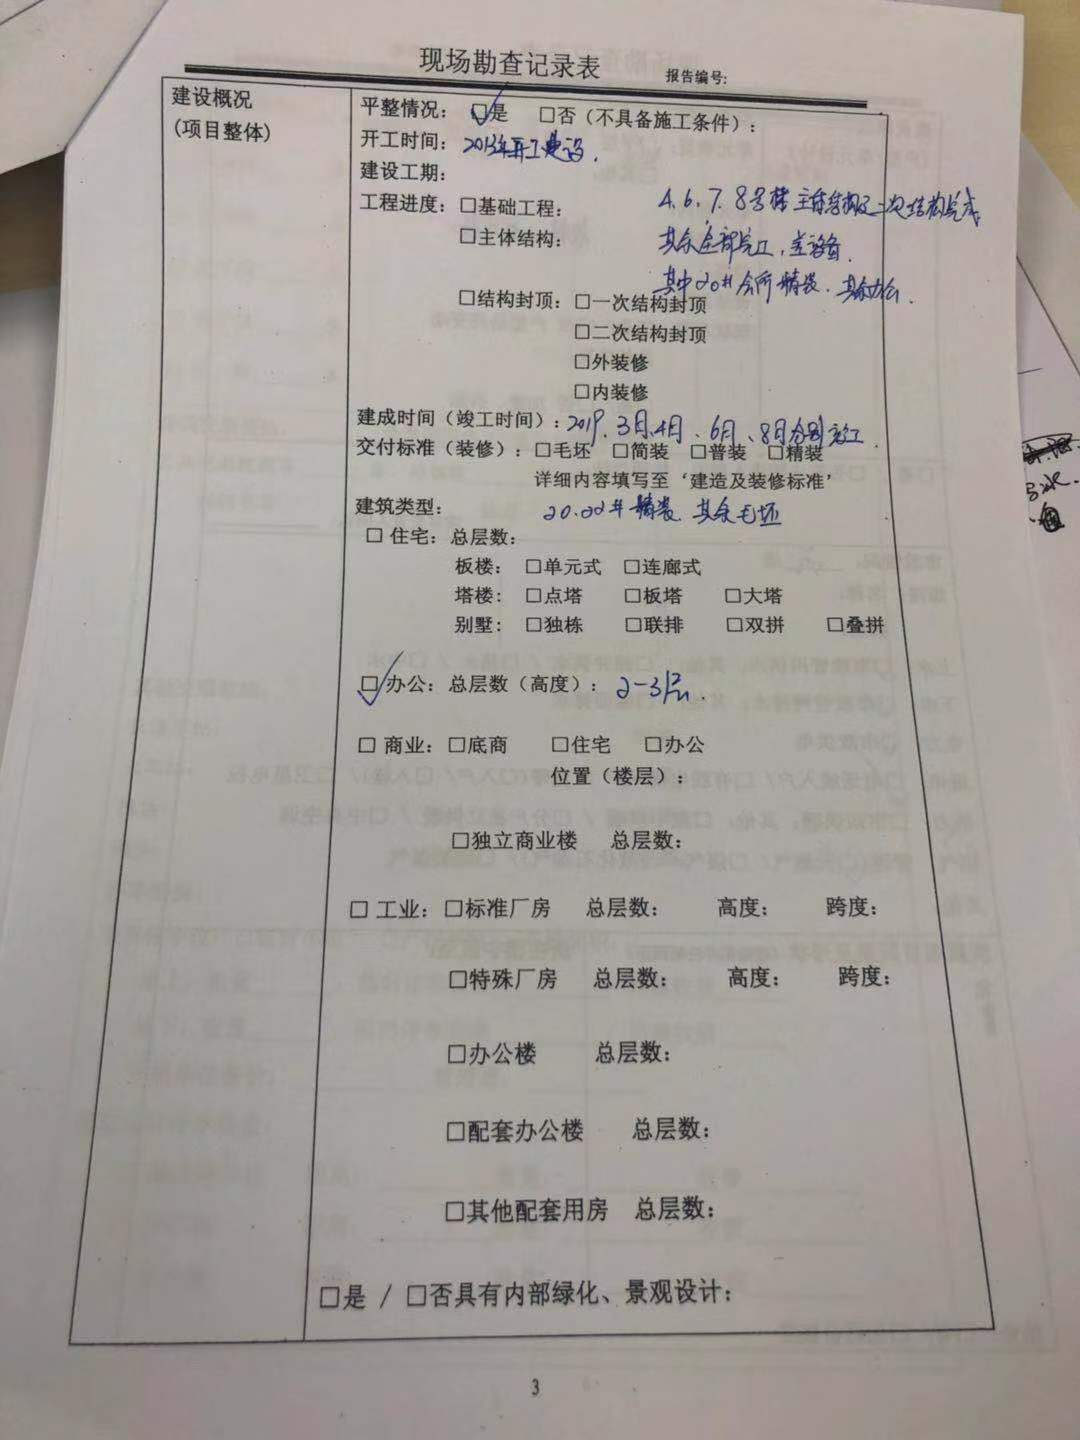 现场勘查记录表 报告编号:
建设概况
(项目整体)
平整情况: ☑是 □否(不具备施工条件):
开工时间: 2013年开工建设.
建设工期:
工程进度: □基础工程: 4.6.7.8号楼主体结构及二次结构完成
□主体结构: 其余全部完工,
其中20# 会所精装. 其余办公.
□结构封顶: □一次结构封顶
□二次结构封顶
□外装修
□内装修
建成时间(竣工时间): 2019. 3月.4月、6月、8月分别完工.
交付标准(装修): □毛坯 □简装 □普装 □精装
详细内容填写至‘建造及装修标准’
建筑类型: 20.22# 精装. 其余毛坯
□ 住宅: 总层数:
板楼: □单元式 □连廊式
塔楼: □点塔 □板塔 □大塔
别墅: □独栋 □联排 □双拼 □叠拼
☑ 办公: 总层数(高度): 2-3层.
□ 商业: □底商 □住宅 □办公
位置(楼层):
□独立商业楼 总层数:
□ 工业: □标准厂房 总层数: 高度: 跨度:
□特殊厂房 总层数: 高度: 跨度:
□办公楼 总层数:
□配套办公楼 总层数:
□其他配套用房 总层数:
□是 / □否具有内部绿化、景观设计:
3